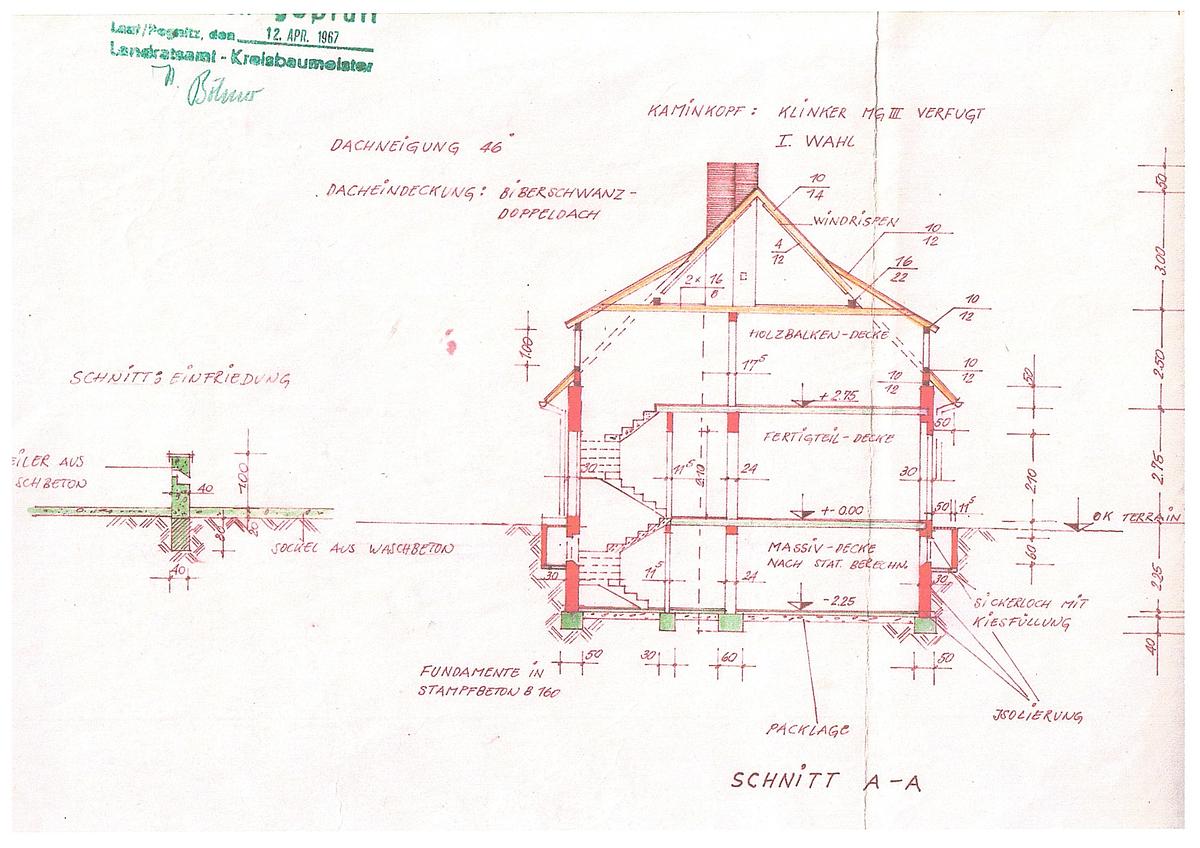 geprüft
Lauf/Pegnitz, den 12. APR. 1967
Landratsamt - Kreisbaumeister
KAMINKOPF: KLINKER MG III VERFUGT
I. WAHL
DACHNEIGUNG 46°
DACHEINDECKUNG: BIBERSCHWANZ-
DOPPELDACH
10/14
WINDRISPEN
10/12
4/12
16/22
2 × 16/8
10/12
50
3.00
HOLZBALKEN-DECKE
1.00
17⁵
10/12
10/12
50
2.50
SCHNITT: EINFRIEDUNG
+2.75
50
FERTIGTEIL-DECKE
EILER AUS
SCHBETON
40
1.00
30
11⁵
2.10
24
30
2.10
2.75
+-0.00
50
11⁵
OK TERRAIN
80
20
SOCKEL AUS WASCHBETON
MASSIV-DECKE
NACH STAT. BERECHN.
60
40
30
11⁵
24
30
2.25
-2.25
SICKERLOCH MIT
KIESFÜLLUNG
40
50
30
60
50
FUNDAMENTE IN
STAMPFBETON B 160
ISOLIERUNG
PACKLAGE
SCHNITT A-A